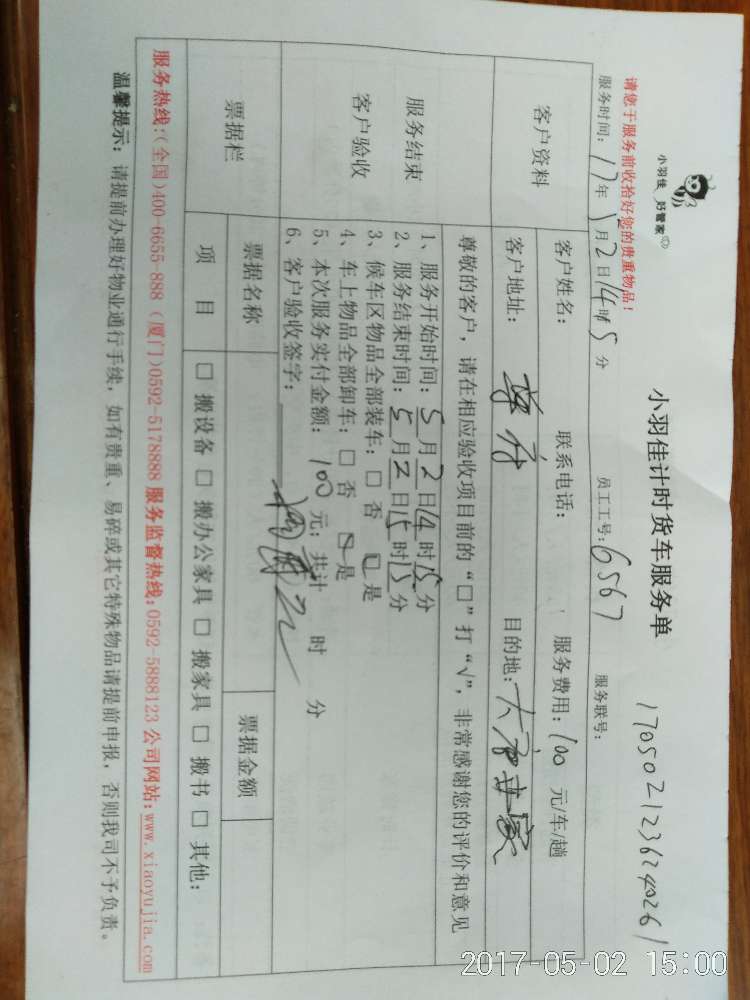 小羽佳 好管家
小羽佳计时货车服务单
1705021236240261
请您于服务前收拾好您的贵重物品!
服务时间: 17年5月2日14时5分 员工工号: 6567 服务联号:
客户资料
客户姓名: 联系电话: 服务费用: 100 元/车/趟
客户地址: 目的地:
服务结束
客户验收
尊敬的客户,请在相应验收项目前的“□”打“√”,非常感谢您的评价和意见
1、服务开始时间: 5月2日14时15分
2、服务结束时间: 5月2日15时15分
3、候车区物品全部装车: □ 否 □ 是
4、车上物品全部卸车: □ 否 □ 是
5、本次服务实付金额: 100 元; 共计 时 分
6、客户验收签字:
票据栏
票据名称 票据金额
项 目 □ 搬设备 □ 搬办公家具 □ 搬家具 □ 搬书 □ 其他:
服务热线:(全国)400-6655-888 (厦门)0592-5178888 服务监督热线:0592-5888123 公司网站:www.xiaoyujia.com
温馨提示: 请提前办理好物业通行手续,如有贵重、易碎或其它特殊物品请提前申报,否则我司不予负责。
2017-05-02 15:00